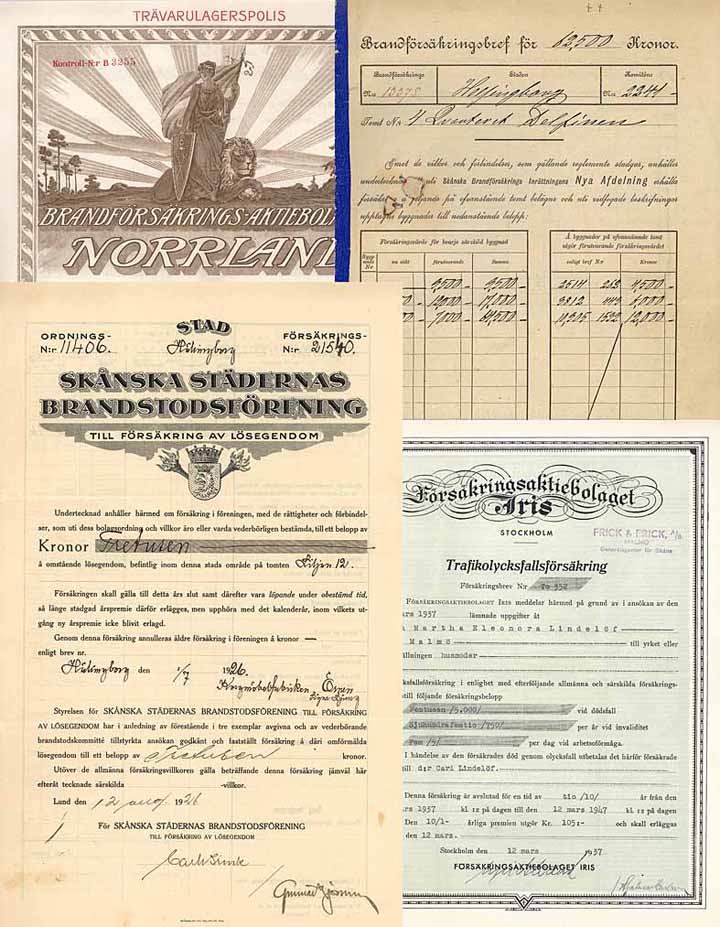 TRÄVARULAGERSPOLIS
Kontroll-N:r B 3255
BRANDFÖRSÄKRINGS-AKTIEBOL
NORRLAND
Brandförsäkringsbref för 62,500 Kronor.
Brandförsäkrings Staden Komiténs
No 13378 Helsingborg No 2244
Tomt Nr 4 Qvarteret Delfinen
Emot de vilkor och förbindelser, som gällande reglemente stadgar, anhålles
undertecknad uti Skånska Brandförsäkrings Inrättningens Nya Afdelning erhålla
försäkring å följande på ofvanstående tomt belägna och uti vidfogade beskrifningar
upptagna byggnader till nedanstående belopp:
Försäkringsvärde för hvarje särskild byggnad
Å byggnader på ofvannämnde tomt
utgör förutvarande försäkringsvärdet
nu sökt förutvarande Summa enligt bref N:r Kronor
9,500 9,500 2514 263 4,500
12,000 17,000 3812 443 6,000
7,000 11,305 1532 12,000
STAD
ORDNINGS- FÖRSÄKRINGS-
N:r 11406. Hälsingborg N:r 21540.
SKÅNSKA STÄDERNAS
BRANDSTODSFÖRENING
TILL FÖRSÄKRING AV LÖSEGENDOM
Undertecknad anhåller härmed om försäkring i föreningen, med de rättigheter och förbindel-
ser, som uti dess bolagsordning och villkor äro eller varda vederbörligen bestämda, till ett belopp av
Kronor Tretusen
å omstående lösegendom, befintlig inom denna stads område på tomten Filjen 12.
Försäkringen skall gälla till detta års slut samt därefter vara löpande under obestämd tid,
så länge stadgad årspremie därför erlägges, men upphöra med det kalenderår, inom vilkets ut-
gång ny årspremie icke blivit erlagd.
Genom denna försäkring annulleras äldre försäkring i föreningen å kronor —
enligt brev nr.
Hälsingborg den 1/7 1926.
Korgmöbelfabriken
Styrelsen för SKÅNSKA STÄDERNAS BRANDSTODSFÖRENING TILL FÖRSÄKRING
AV LÖSEGENDOM har i anledning av förestående i tre exemplar avgivna och av vederbörande
brandstodskommitté tillstyrkta ansökan godkänt och fastställt försäkring å däri omförmälda
lösegendom till ett belopp av Tretusen kronor.
Utöver de allmänna försäkringsvillkoren gälla beträffande denna försäkring jämväl här
efteråt tecknade särskilda villkor.
Lund den 12 aug. 1926
För SKÅNSKA STÄDERNAS BRANDSTODSFÖRENING
TILL FÖRSÄKRING AV LÖSEGENDOM
Försäkringsaktiebolaget
Iris
STOCKHOLM
FRICK & FRICK, A/B
MALMÖ
Generalagentur för Skåne
Trafikolycksfallsförsäkring
Försäkringsbrev Nr To 352
FÖRSÄKRINGSAKTIEBOLAGET IRIS meddelar härmed på grund av i ansökan av den
ars 1937 lämnade uppgifter åt
Martha Eleonora Lindelöf
Malmö till yrket eller
ällning husmoder
ksfallsförsäkring i enlighet med efterföljande allmänna och särskilda försäkrings-
till följande försäkringsbelopp
Femtusen /5.000/ vid dödsfall
Sjuhundrafemtio /750/ per år vid invaliditet
Fem /5/ per dag vid arbetsoförmåga.
I händelse av den försäkrades död genom olycksfall utbetalas det härför försäkrade
till d:r Carl Lindelöf.
Denna försäkring är avslutad för en tid av tio /10/ år från den
ars 1937 kl 12 på dagen till den 12 mars 1947 kl 12 på dagen
Den 10/1- årliga premien utgör Kr. 105:- och skall erläggas
den 12 mars.
Stockholm den 12 mars 1937.
FÖRSÄKRINGSAKTIEBOLAGET IRIS